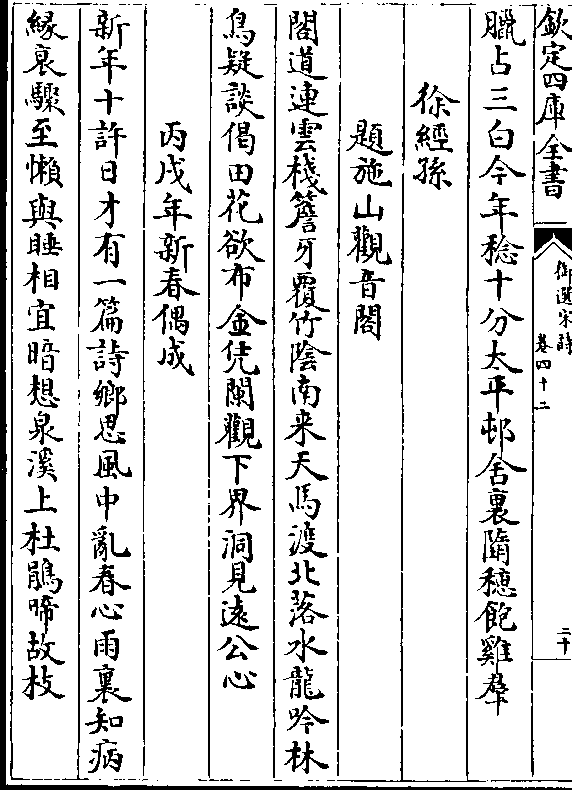 欽定四庫全書
御選宋詩
卷四十二
二十
臘占三白今年稔十分太平邨舍裏隨穗飽雞羣
徐經孫
題施山觀音閣
閣道連雲棧簷牙覆竹陰南来天馬渡北落水龍吟林
鳥疑談偈田花欲布金凭闌觀下界洞見遠公心
丙戌年新春偶成
新年十許日才有一篇詩鄉思風中亂春心雨裏知病
緣衰驟至懶與睡相宜暗想泉溪上杜鵑啼故枝